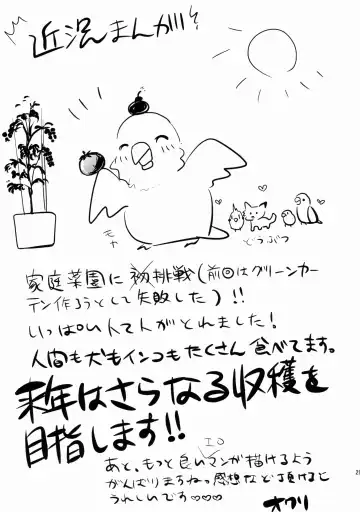 近況まんが!
モチ
どうぶつ
家庭菜園に初挑戦(前回はグリーンカー
テン作ろうとして失敗した)!!
いっぱい
がとれました!
人間も犬もインコもたくさん食べてます。
来年はさらなる収穫を
目指します!!
あと、もっと良いマンガ描けるよう
がんばりますねっ感想など頂けると
うれしいです♡♡♡
オクリ